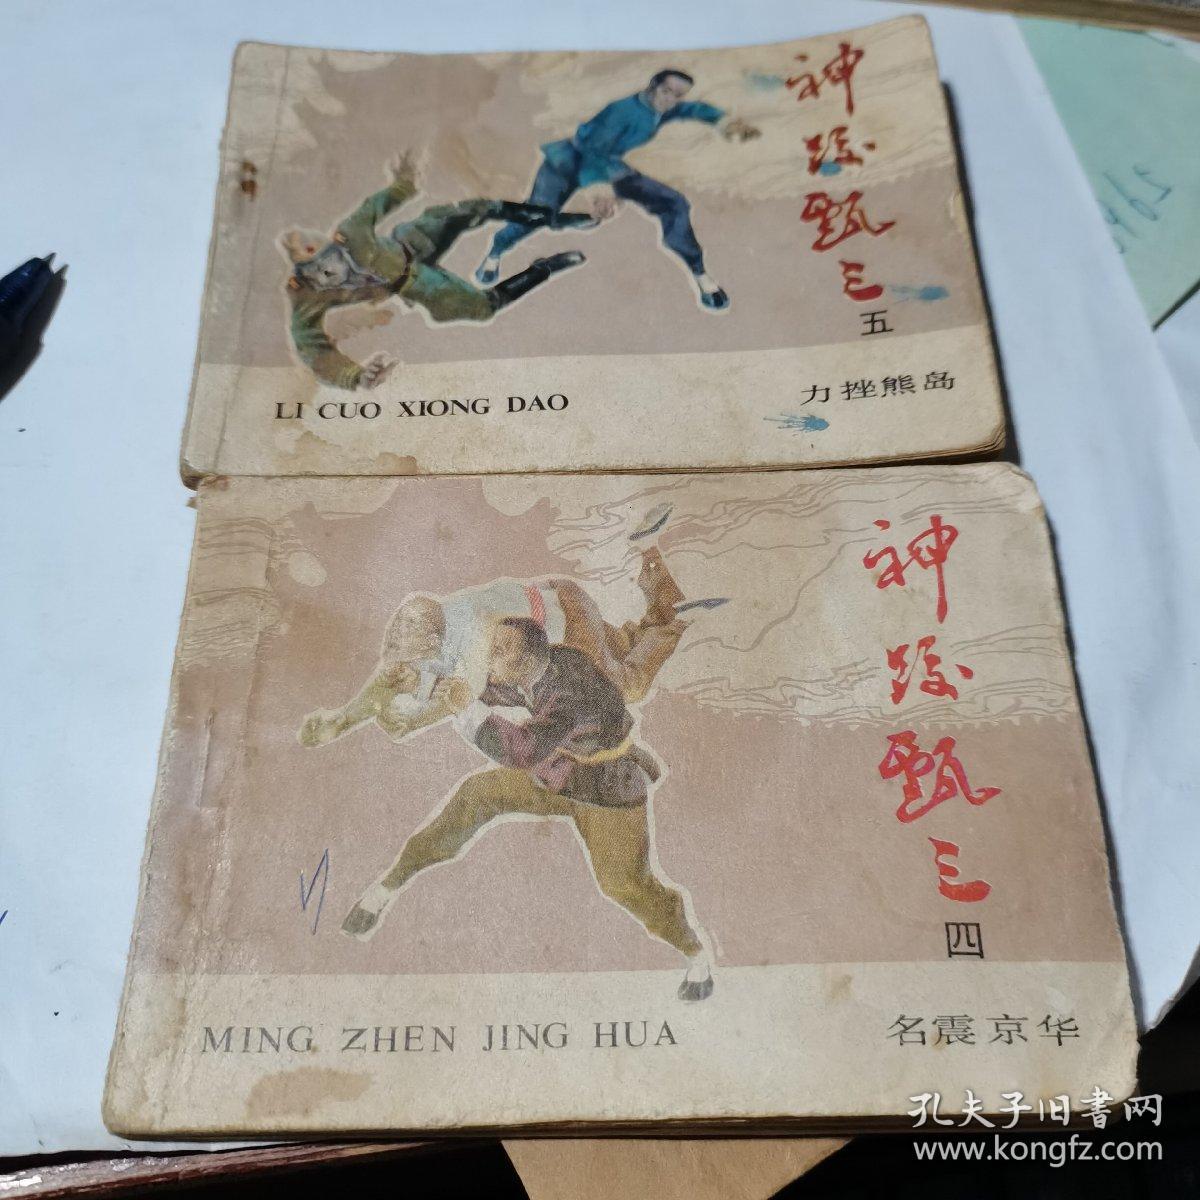 神跤甄三
五
力挫熊岛
LI CUO XIONG DAO
神跤甄三
四
名震京华
MING ZHEN JING HUA
孔夫子旧書网
www.kongfz.com